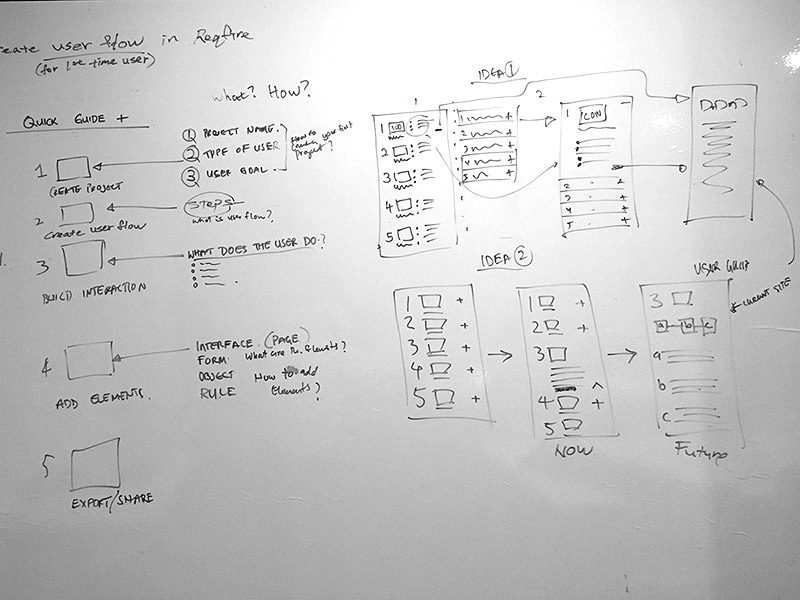 create user flow in Reqfire
(for 1st time user)
what? How?
QUICK GUIDE +
1
CREATE PROJECT
① PROJECT NAME.
② TYPE OF USER
③ USER GOAL.
How to
your first
Project?
2
Create user flow
STEPS
what is user flow?
3
BUILD INTERACTION
WHAT DOES THE USER DO?
4
ADD ELEMENTS.
INTERFACE (PAGE)
FORM What are the elements?
OBJECT How to add
RULE Elements?
5
EXPORT/SHARE
IDEA ①
1
1
2
3
4
5
1 +
2 +
3 +
4 +
5 +
2
1
ICON
2 - +
3 - +
4 - +
5 - +
IDEA ②
1 +
2 +
3 +
4 +
5 +
1 +
2 +
3
^
4 +
5
NOW
USER GUIDE
CURRENT SITE
3
a b c
a
b
c
Future